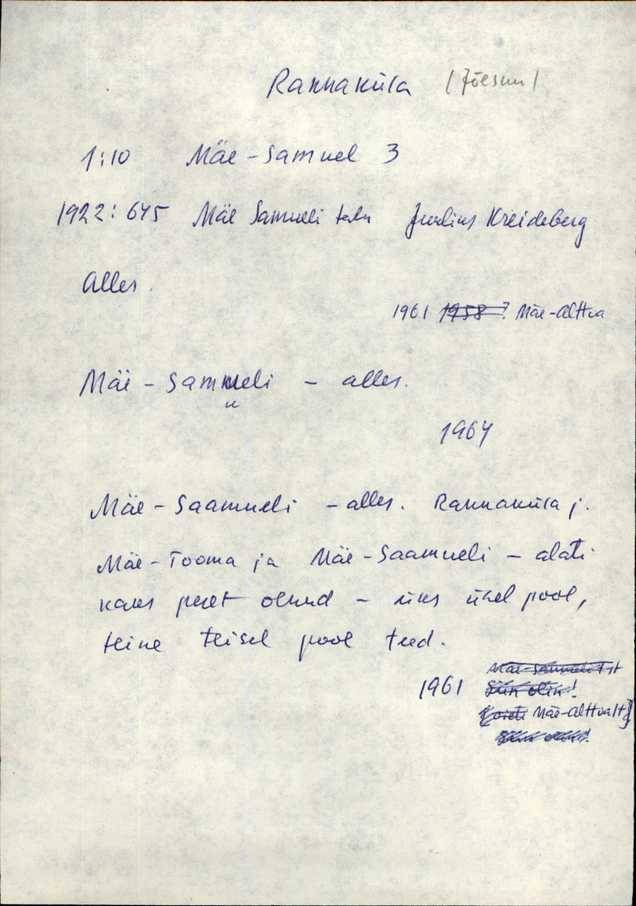 Rannaküla (Jõesuu)
1:10 Mäe-Samuel 3
1922: 645 Mäe Samueli talu Juulius Kreideberg
Alles.
1961 1958? Mäe-Alttoa
Mäe-Samueli - alles.
1964
Mäe-Saamueli - alles. Rannaküla j.
Mäe-Tooma ja Mäe-Saamueli - alati
kaks peret olnud - üks ühel pool,
teine teisel pool teed.
1961 Mäe-Samueli
Siin olin!
Mäe-Alttoalt]